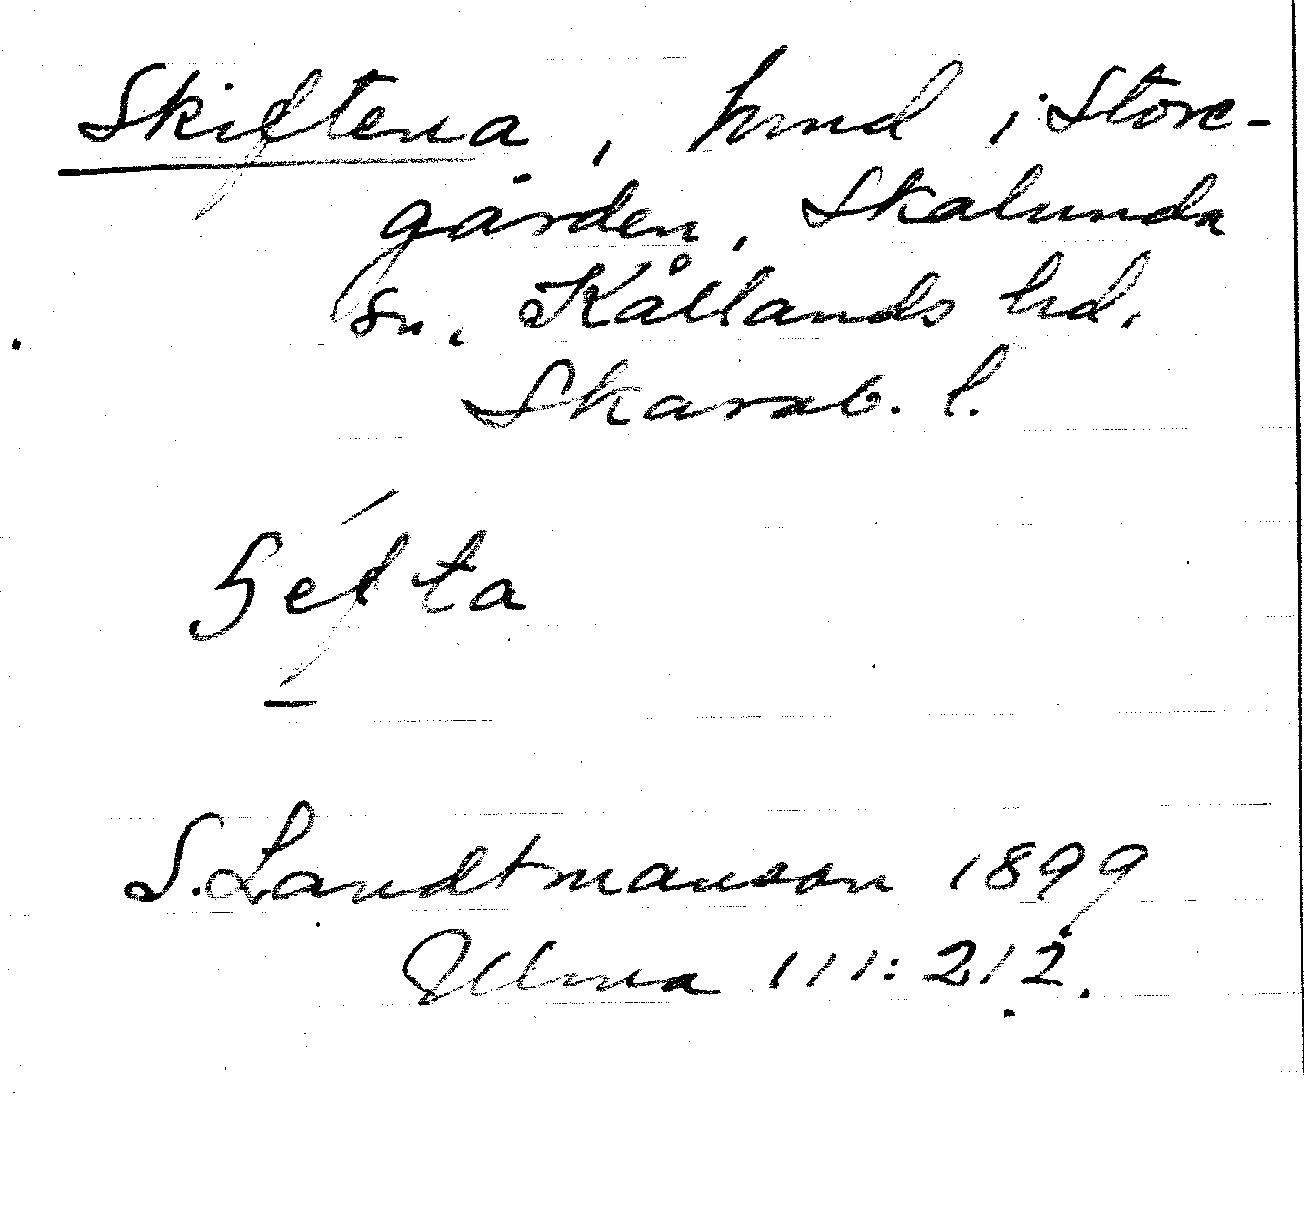 Skiftena, hmd i Store-
gården, Skalunda
sn, Kållands hd.
Skarab. l.
S. Landtmanson 1899
Ulma 111:212.